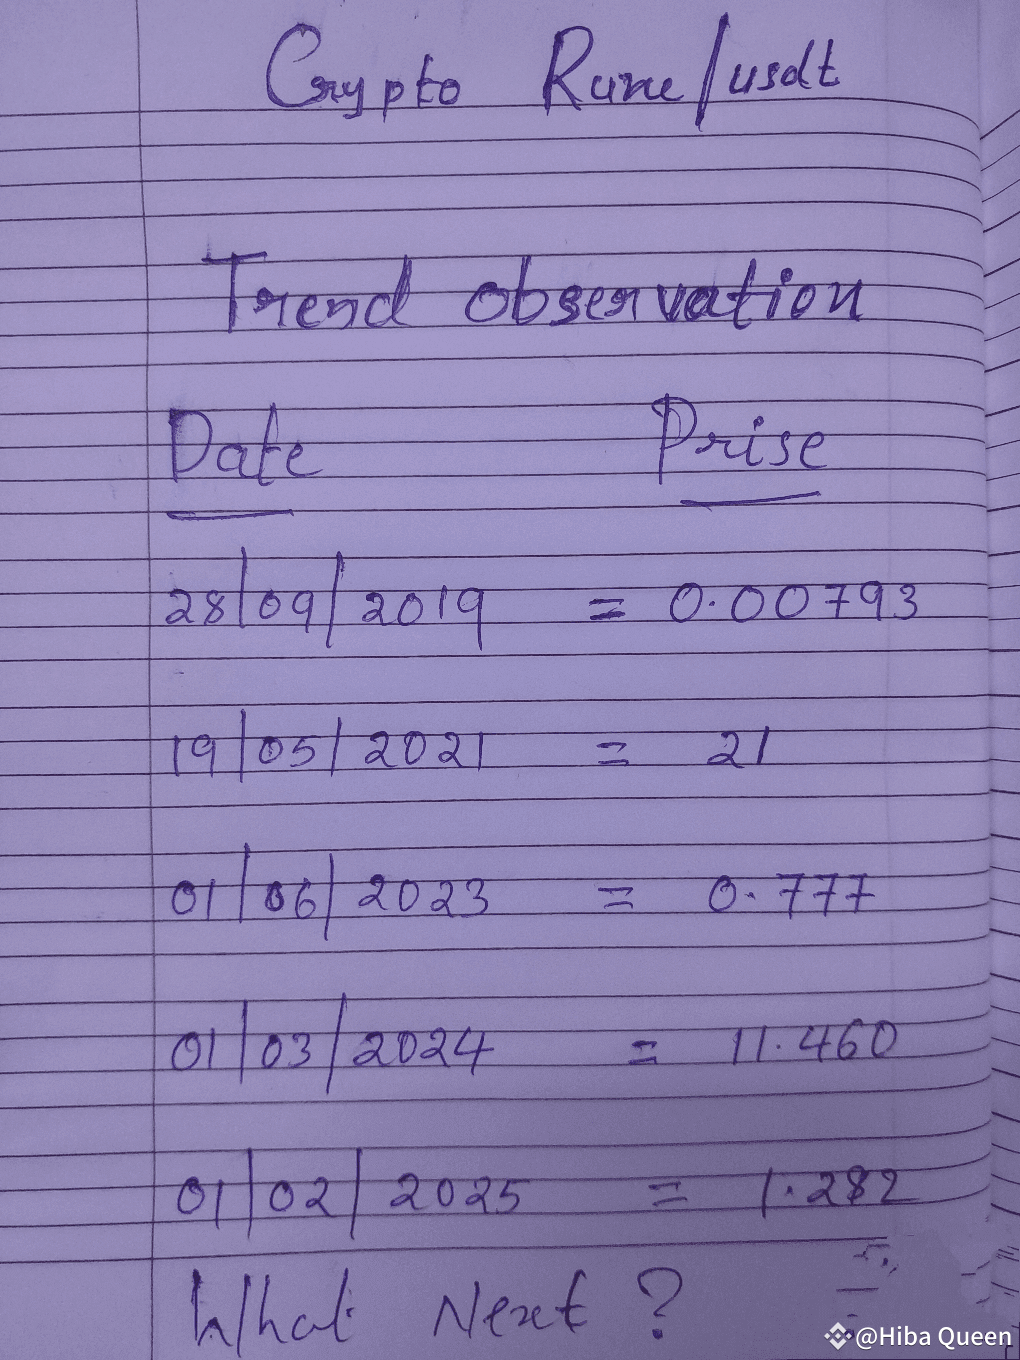 Crypto Rune/usdt
Trend observation
Date Prise
28/09/2019 = 0.00793
19/05/2021 = 21
01/06/2023 = 0.777
01/03/2024 = 11.460
01/02/2025 = 1.282
What Next ?
@Hiba Queen